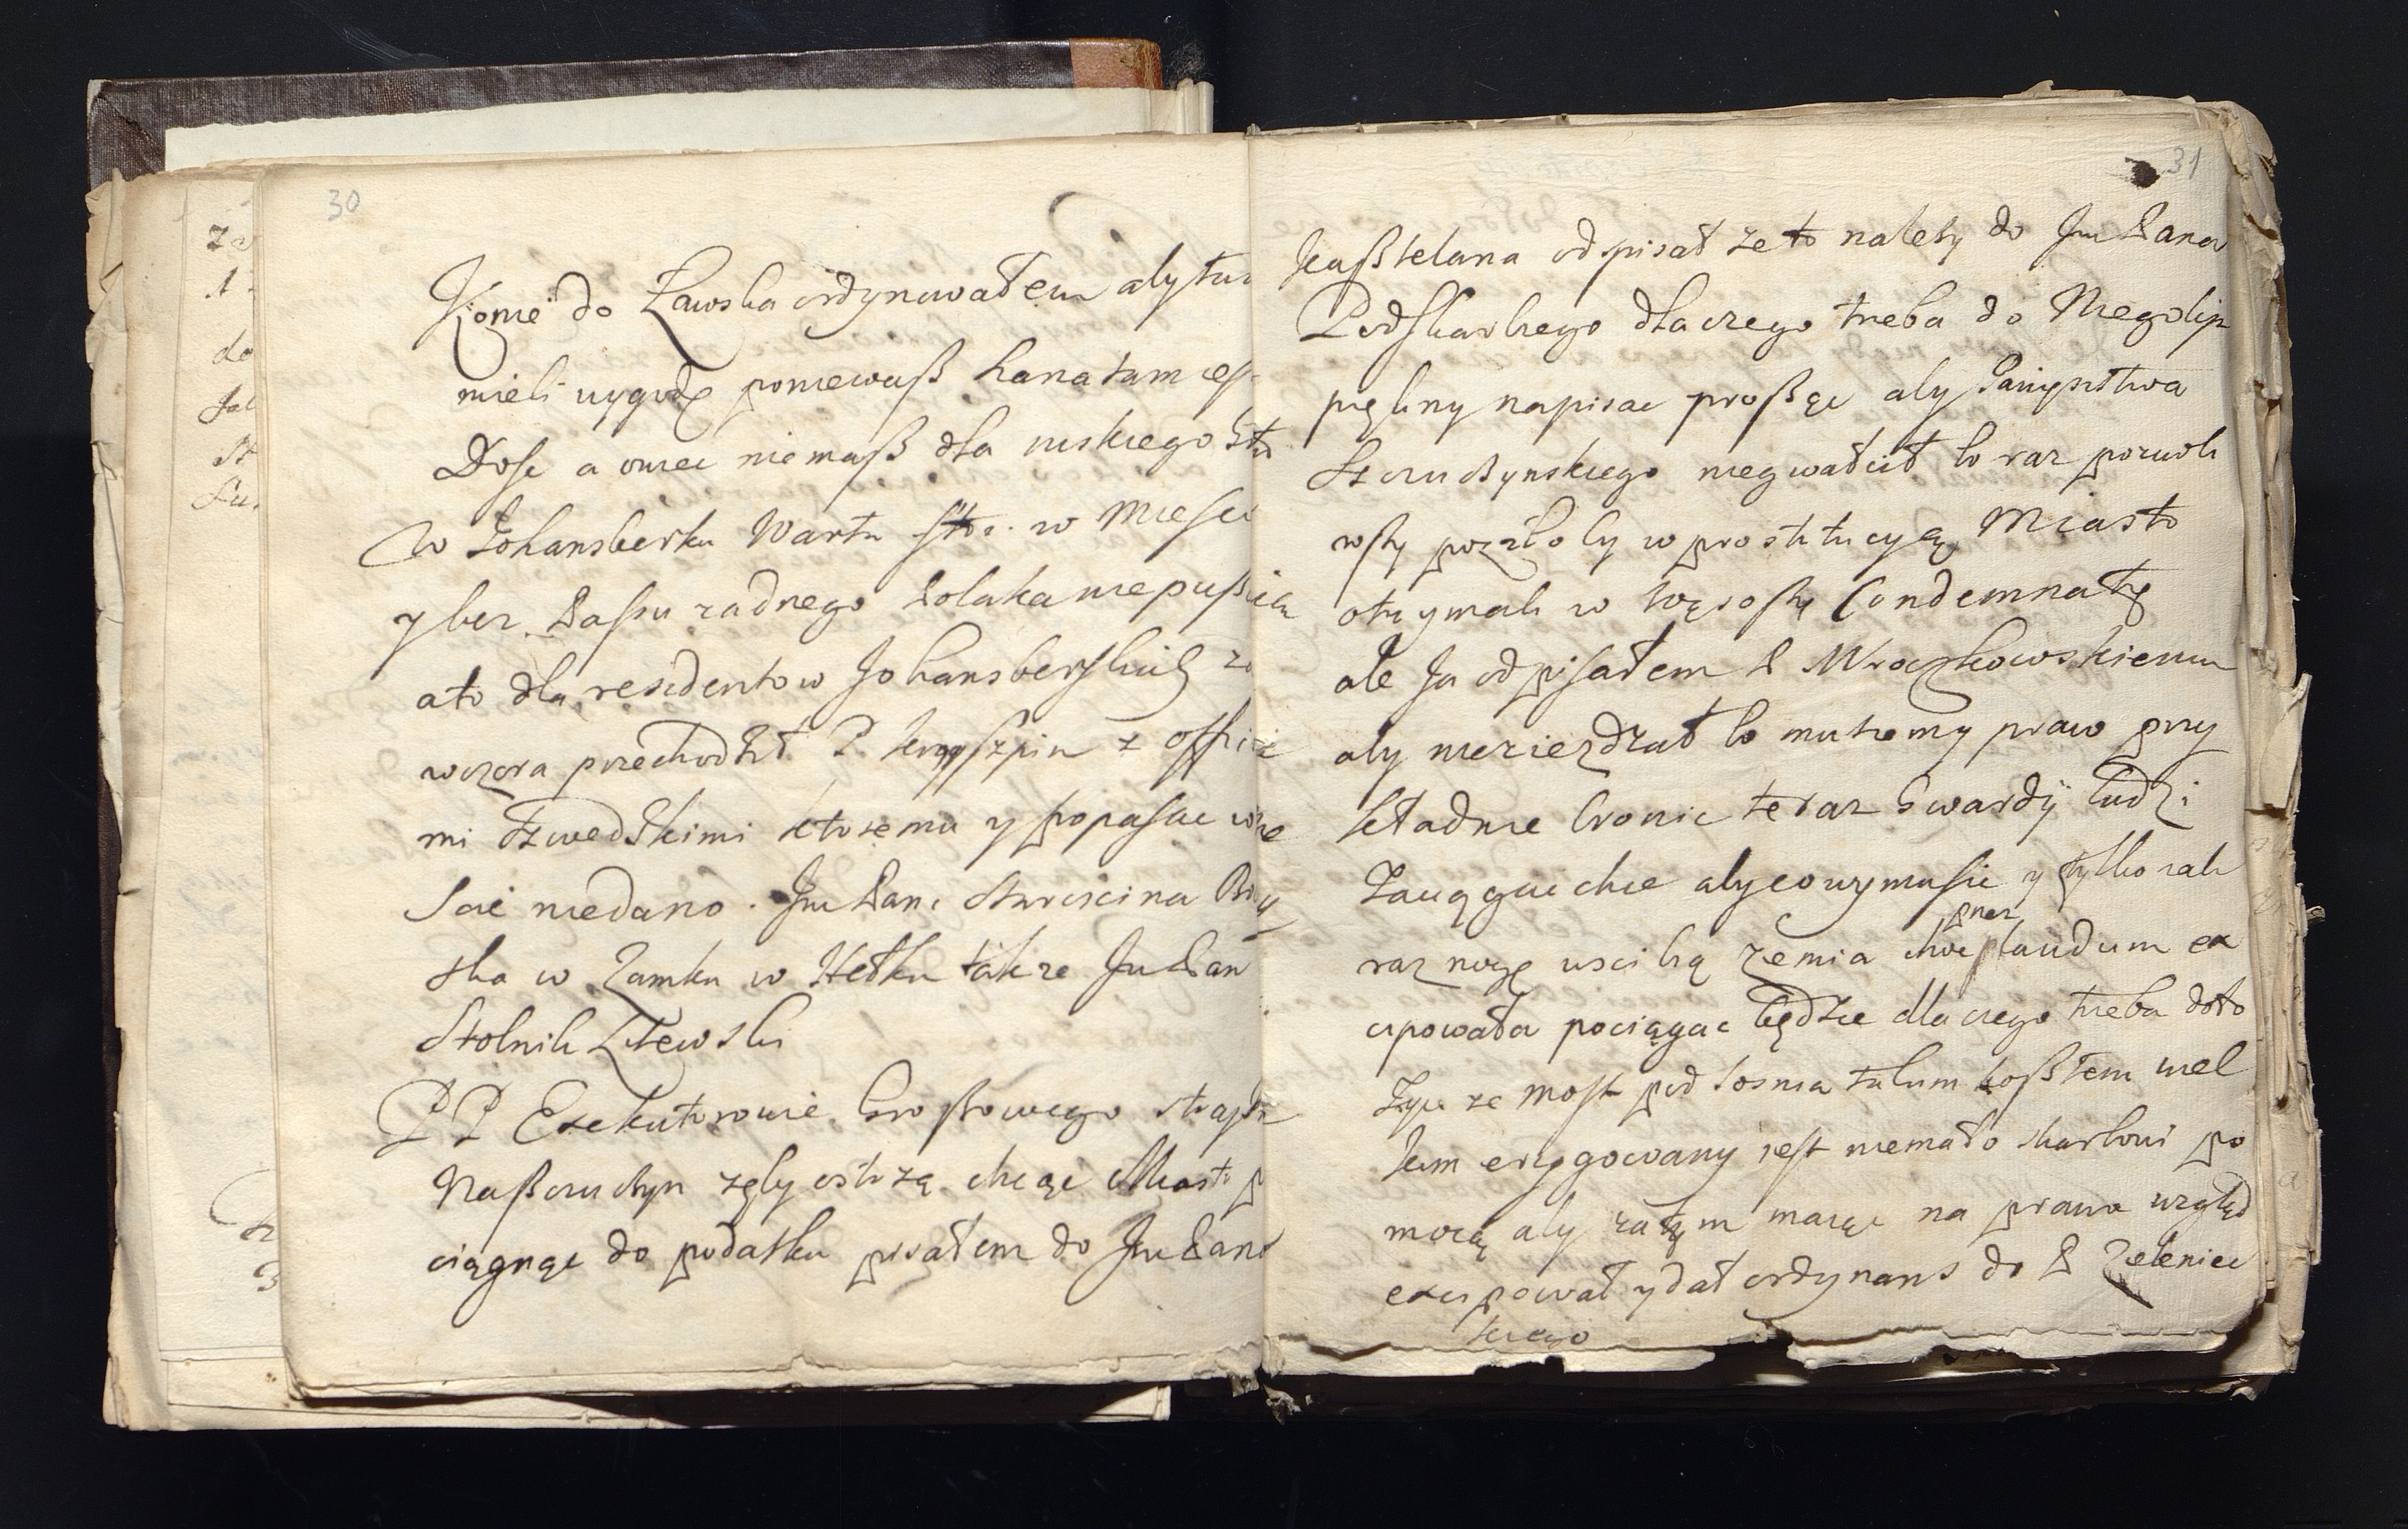 30
Konie do Ławska ordynowałem aby tu
mieli wygodę poniewasz siana tam jest
Dosc a owsa nie masz dla ruskiego
W Johansberku Warta stoi w Miescie
y bez Passu zadnego Polaka niepuszcza
a to dla residentow Johansberskich
wczora przechodził P. z offic
mi Szwedzkimi ktoremu y popasac w
Scie niedano. Jm Pani Starościna
ska w Zamku w Ełku także Jm Pan
Stolnik Litewski
PP Exekutorowie Groszowego
Naszczuchyn zęby ostrzą chcąc Miasto p
ciągnąc do podatku pisałem do Jm Pana
31
Kasztelana odpisał ze to nalezy do Jm Pana
Podskarbiego dla czego treba do Niego
napisac prosząc aby Panystwa
Szczuczynskiego niegwałcił bo raz pozwoli
wszy poszło by w prostitucyą Miasto
otrymali w Wąsoszu Condemnatę
ale Ja odpisałem P Mroczkowskiemu
aby nieziezdzał bo musiemy praw pry
kładnie bronic teraz Gwardÿ ludzi
Zaciągac chce aby cowymusic y tylko
raz nogę uscibią Zemia choc przez laudum ex
cipowała pociągac będzie dla czego treba doło
Zyc ze most pod Łosma takim kosztem wiel
kim erygowany jest niemało skarbowi po
mocą aby zatym maiąc na prawa wzgląd
excypował y dał ordynans do P Zieleniec
kiego